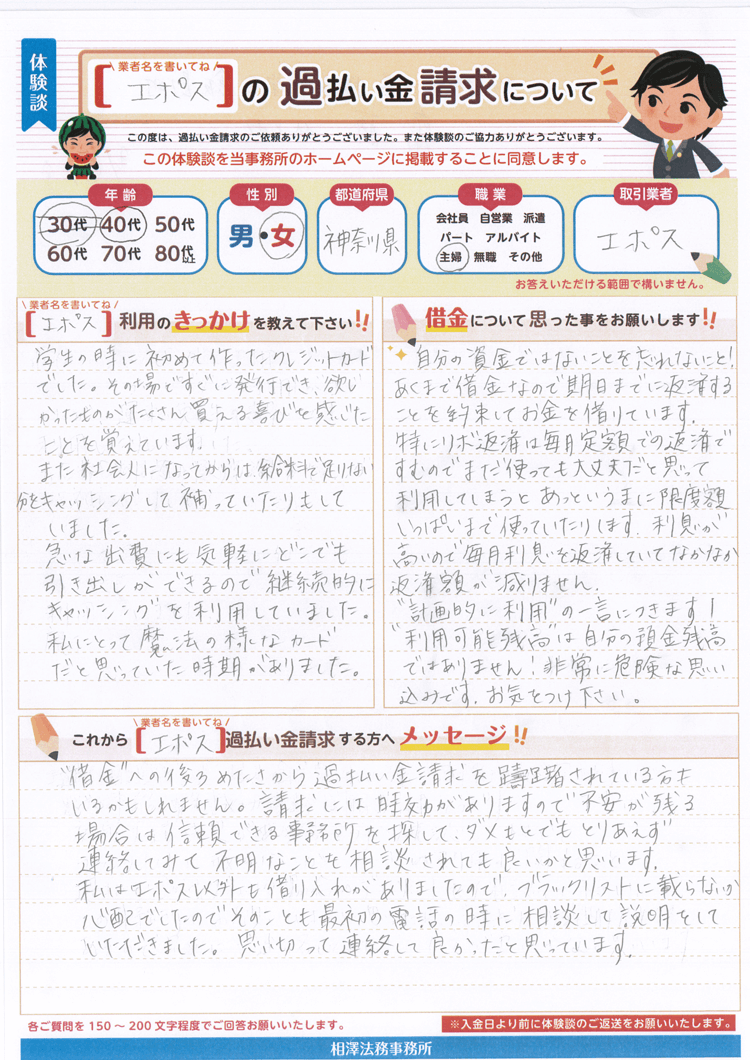 体験談
\ 業者名を書いてね /
[ エポス ] の 過払い金 請求について
この度は、過払い金請求のご依頼ありがとうございました。また体験談のご協力ありがとうございます。
この体験談を当事務所のホームページに掲載することに同意します。
年齢
30代 40代 50代
60代 70代 80代以上
性別
男・女
都道府県
神奈川県
職業
会社員 自営業 派遣
パート アルバイト
主婦 無職 その他
取引業者
エポス
お答えいただける範囲で構いません。
\ 業者名を書いてね /
[ エポス ] 利用のきっかけを教えて下さい!!
学生の時に初めて作ったクレジットカード
でした。その場ですぐに発行でき、欲し
かったものがたくさん買える喜びを感じた
ことを覚えています。
また社会人になってからは給料で足りない
分をキャッシングして補っていたりもして
いました。
急な出費にも気軽にどこでも
引き出しができるので継続的に
キャッシングを利用していました。
私にとって魔法の様なカード
だと思っていた時期がありました。
借金について思った事をお願いします!!
自分の資金ではないことを忘れないこと!
あくまで借金なので期日までに返済する
ことを約束してお金を借りています。
特にリボ返済は毎月定額での返済で
すむのでまだ使っても大丈夫だと思って
利用してしまうとあっというまに限度額
いっぱいまで使っていたりします。利息が
高いので毎月利息を返済していてなかなか
返済額が減りません。
"計画的に利用"の一言につきます!
"利用可能残高"は自分の預金残高
ではありません!非常に危険な思い
込みです。お気をつけ下さい。
\ 業者名を書いてね /
これから [ エポス ] 過払い金請求する方へ メッセージ!!
"借金"への後ろめたさから過払い金請求を躊躇されている方も
いるかもしれません。請求には時効がありますので不安が残る
場合は信頼できる事務所を探して、ダメもとでもとりあえず
連絡してみて不明なことを相談されても良いかと思います。
私はエポス以外も借り入れがありましたので、ブラックリストに載らないか
心配でしたのでそのことも最初の電話の時に相談して説明をして
いただきました。思い切って連絡して良かったと思っています。
各ご質問を150～200文字程度でご回答お願いいたします。
※入金日より前に体験談のご返送をお願いいたします。
相澤法務事務所